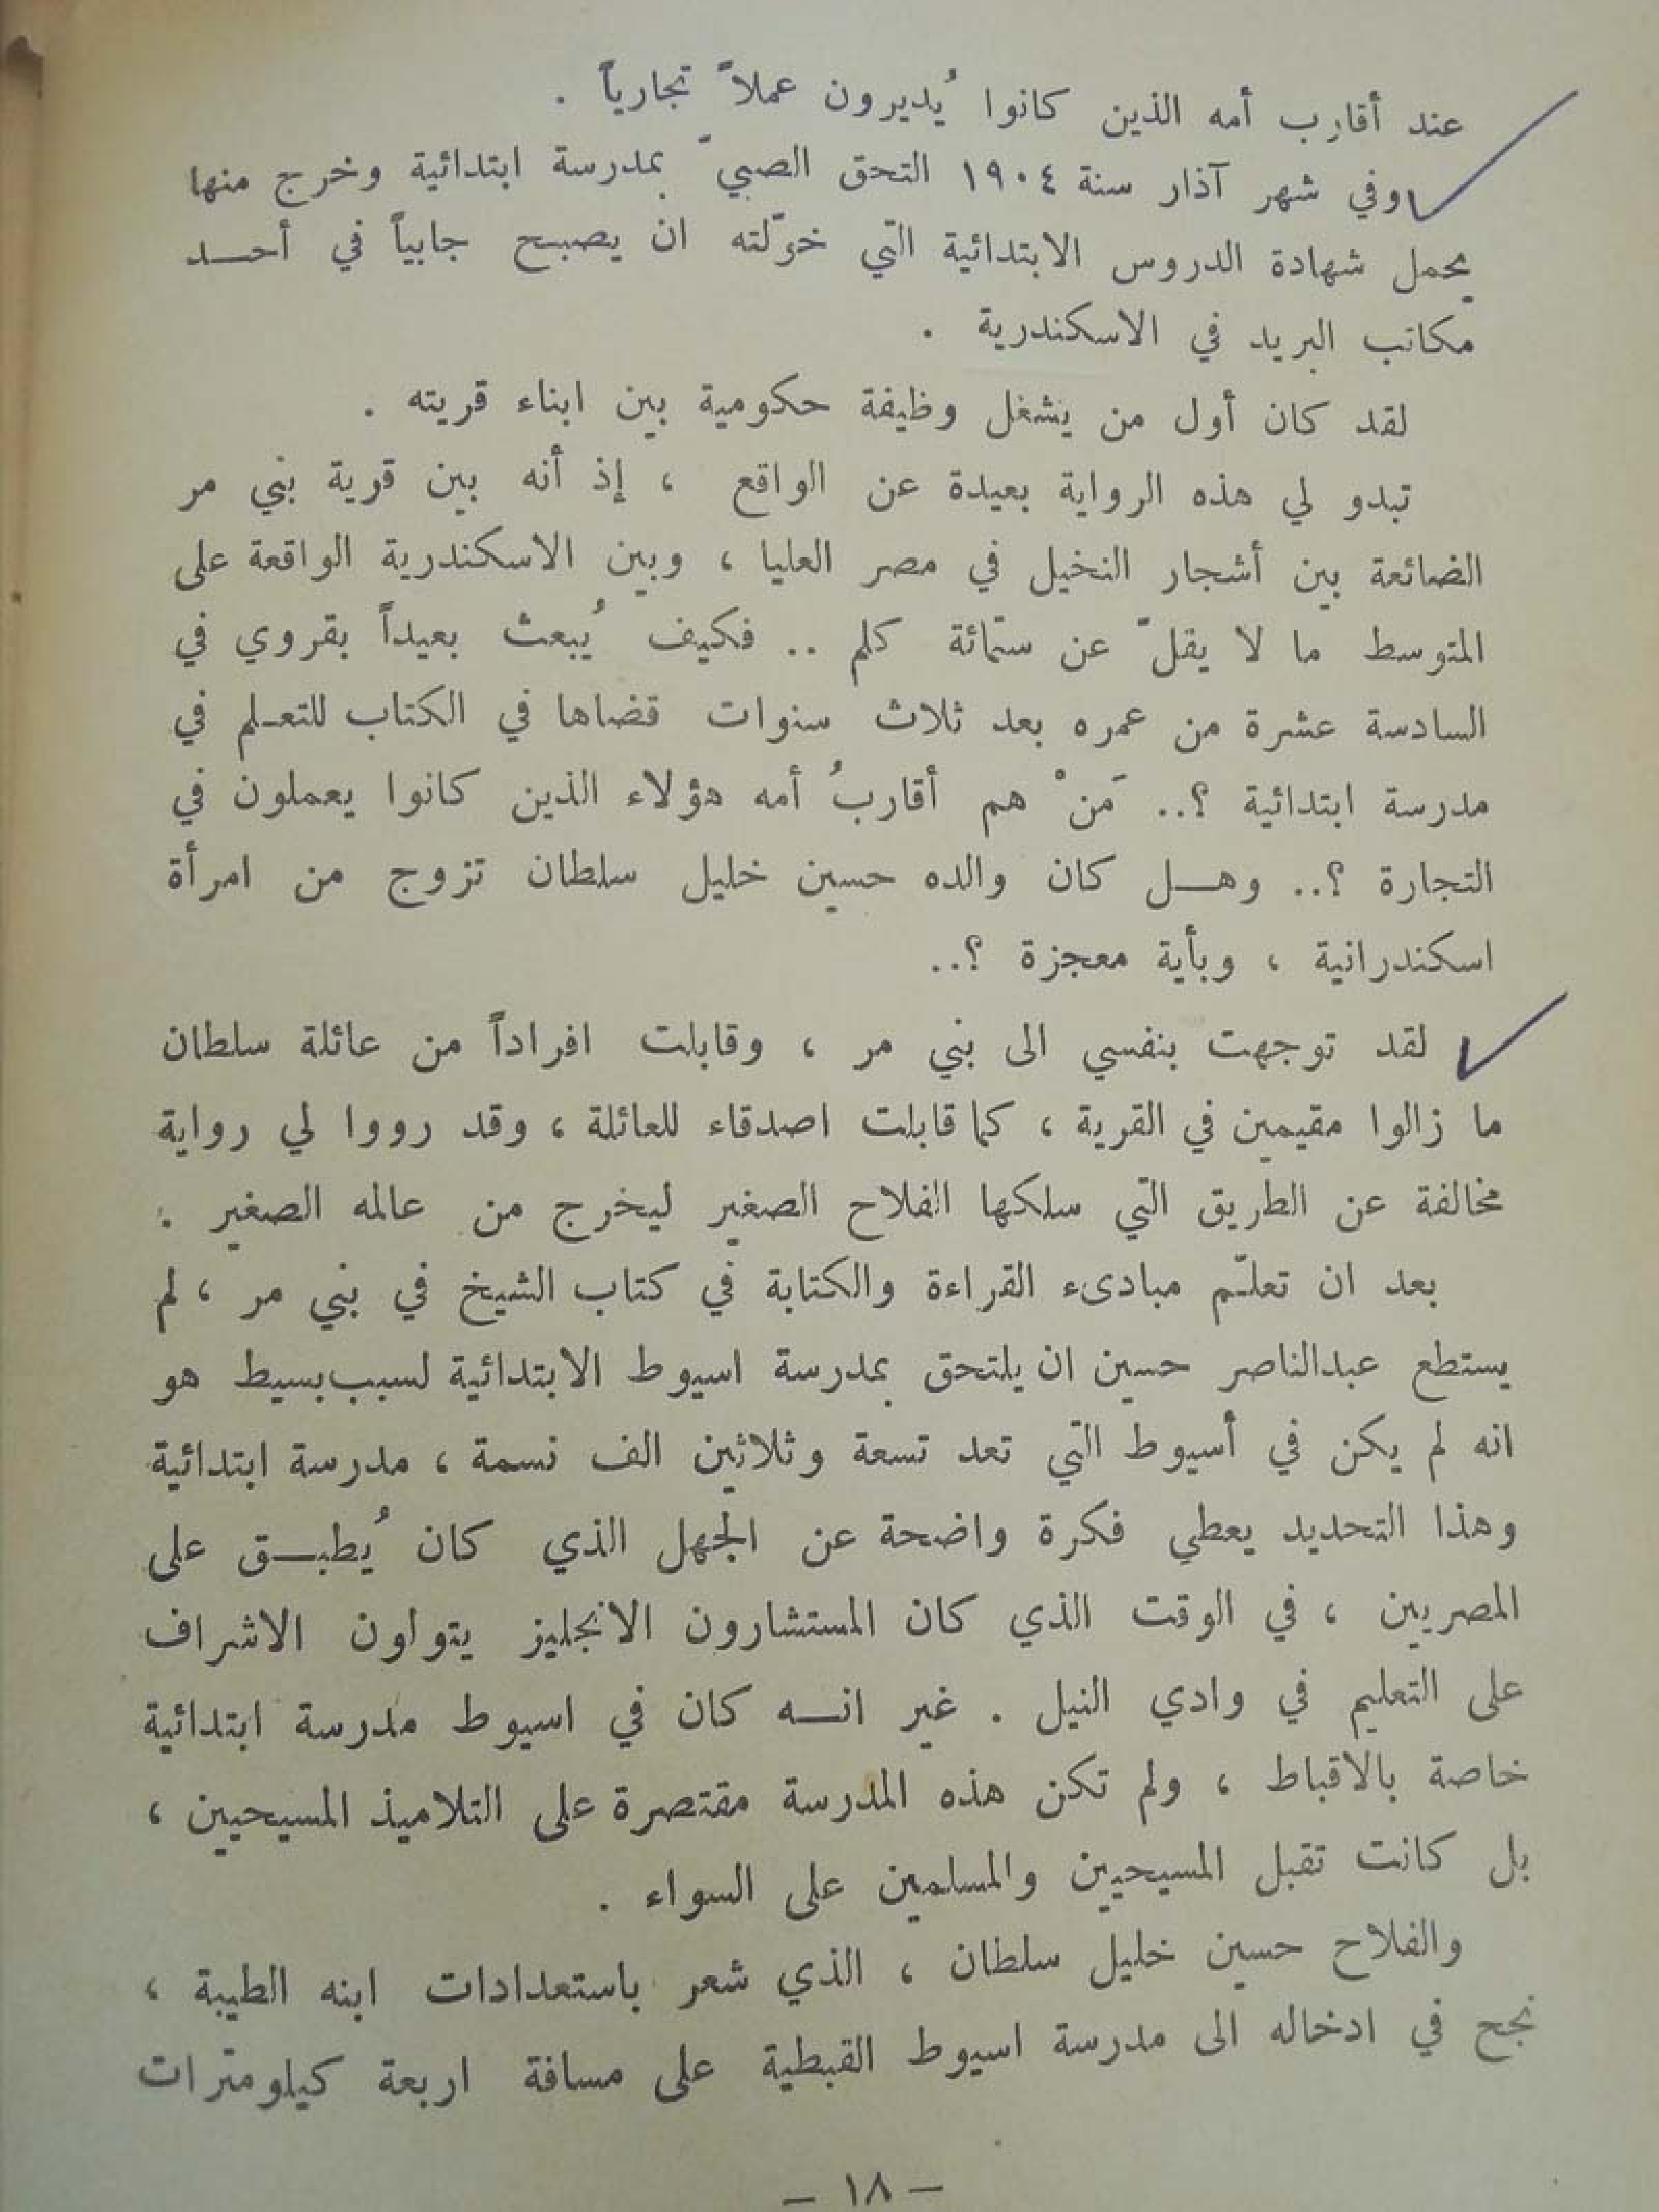 عند أقارب أمه الذين كانوا يُديرون عملاً تجارياً .
وفي شهر آذار سنة ١٩٠٤ التحق الصبيّ بمدرسة ابتدائية وخرج منها
يحمل شهادة الدروس الابتدائية التي خوّلته ان يصبح جابياً في أحد
مكاتب البريد في الاسكندرية .
لقد كان أول من يشغل وظيفة حكومية بين ابناء قريته .
تبدو لي هذه الرواية بعيدة عن الواقع ، إذ أنه بين قرية بني مر
الضائعة بين أشجار النخيل في مصر العليا ، وبين الاسكندرية الواقعة على
المتوسط ما لا يقلّ عن ستمائة كلم .. فكيف يُبعث بعيداً بقروي في
السادسة عشرة من عمره بعد ثلاث سنوات قضاها في الكتاب للتعلم في
مدرسة ابتدائية ؟.. مَنْ هم أقاربُ أمه هؤلاء الذين كانوا يعملون في
التجارة ؟.. وهل كان والده حسين خليل سلطان تزوج من امرأة
اسكندرانية ، وبأية معجزة ؟..
لقد توجهت بنفسي الى بني مر ، وقابلت افراداً من عائلة سلطان
ما زالوا مقيمين في القرية ، كما قابلت اصدقاء للعائلة ، وقد رووا لي رواية
مخالفة عن الطريق التي سلكها الفلاح الصغير ليخرج من عالمه الصغير :
بعد ان تعلّم مبادىء القراءة والكتابة في كتاب الشيخ في بني مر ، لم
يستطع عبدالناصر حسين ان يلتحق بمدرسة اسيوط الابتدائية لسبب بسيط هو
انه لم يكن في أسيوط التي تعد تسعة وثلاثين الف نسمة ، مدرسة ابتدائية
وهذا التحديد يعطي فكرة واضحة عن الجهل الذي كان يُطبق على
المصريين ، في الوقت الذي كان المستشارون الانجليز يتولون الاشراف
على التعليم في وادي النيل . غير انه كان في اسيوط مدرسة ابتدائية
خاصة بالاقباط ، ولم تكن هذه المدرسة مقتصرة على التلاميذ المسيحيين ،
بل كانت تقبل المسيحيين والمسلمين على السواء .
والفلاح حسين خليل سلطان ، الذي شعر باستعدادات ابنه الطيبة ،
نجح في ادخاله الى مدرسة اسيوط القبطية على مسافة اربعة كيلومترات
– ١٨ –